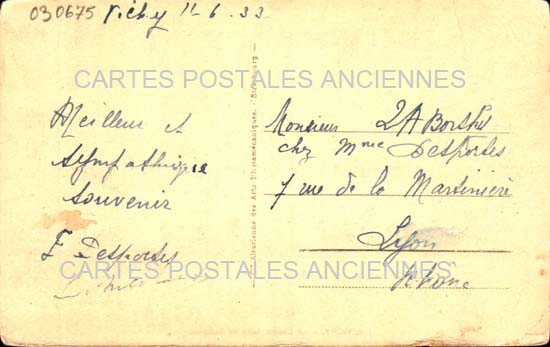 030675 Vichy 11-6.33
CARTES POSTALES ANCIENNES
Meilleur et
sympathique
souvenir
F Desportes
Monsieur
chez Mme Desportes
7 rue de la Martinière
Lyon
Rhône
Alsacienne des Arts Photomécaniques. - Strasbourg
CARTES POSTALES ANCIENNES